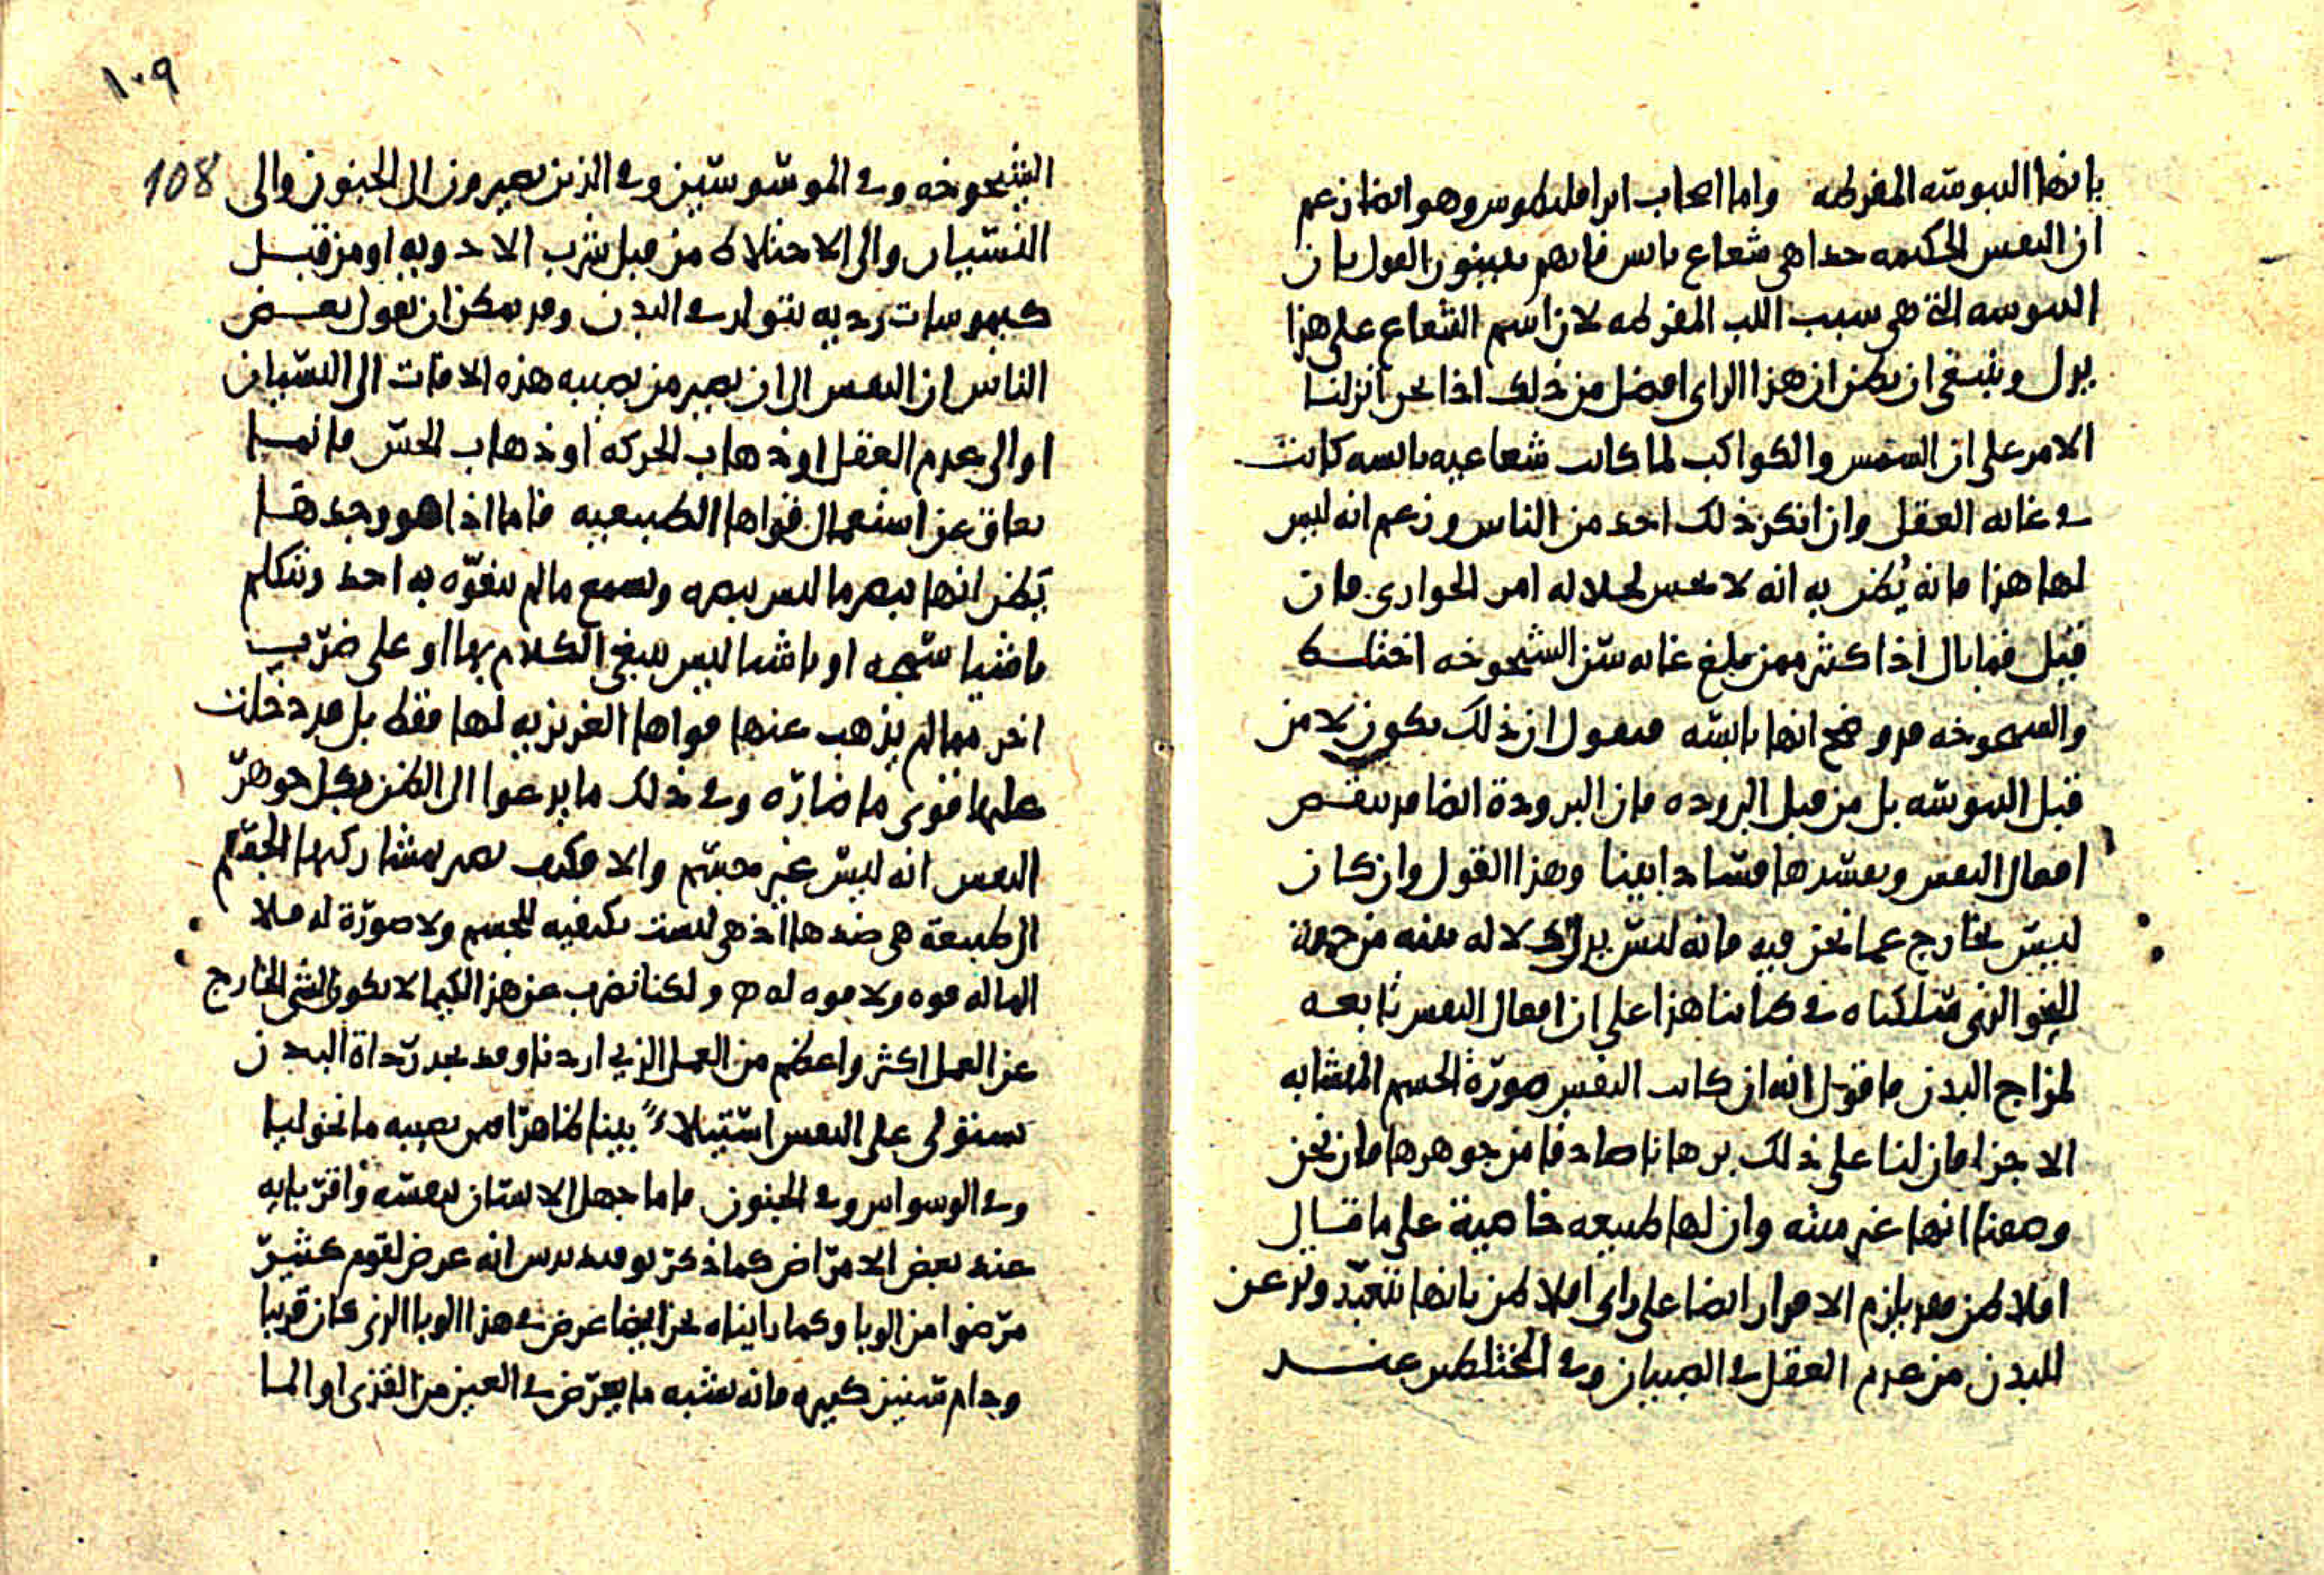 بانها اليبوسه المفرطه واما اصحاب ايراقليطوس وهو ايضا زعم
ان النفس الحكيمه جدا هي شعاع يابس فانهم يعينون القول بان
اليبوسه التي هي سبب اللب المفرطه لان اسم الشعاع على هذا
يدل وينبغي ان يظن ان هذا الراى افضل من ذلك اذا نحن انزلنا
الامر على ان الشمس والكواكب لما كانت شعاعيه يابسه كانت
في غايه العقل وان انكر ذلك احد من الناس وزعم انه ليس
لها هذا فانه يُظن به انه لا يحس لجلاله امر الجوارى فان
قيل فما بال اذا كثير ممن يبلغ غايه سن الشيخوخه اختلط
والشيخوخه قد وضح انها يابسه فنقول ان ذلك يكون لا من
قبل اليبوسه بل من قبل البروده فان البرودة ايضا قد تنقص
افعال النفس وتفسدها فسادا بينا وهذا القول وان كان
ليس بخارج عما نحن فيه فانه ليس يدل دلاله بينه من جهة
النحو الذى سلكناه في كتابنا هذا على ان افعال النفس تابعه
لمزاج البدن فاقول انه ان كانت النفس صورة الجسم المتشابه
الاجزا فان لنا على ذلك برهانا صادقا من جوهرها فان نحن
وصفنا انها غير ميته وان لها طبيعه خاصية على ما قال
افلاطن فقد يلزم الاقرار ايضا على راى افلاطن بانها تتعبّد وتذعن
للبدن من عدم العقل في الصبيان وفي المختلطين عند
١٠٩
108
الشيخوخه وفي الموسوسين وفي الذين يصيرون الى الجنون والى
النسيان والى الاختلاط من قبل شرب الادويه او من قبل
كيموسات رديه تتولد في البدن وقد يمكن ان يقول بعض
الناس ان النفس الى ان يصير من يصيبه هذه الافات الى النسيان
او الى عدم العقل او ذهاب الحركه او ذهاب الحس فانما
تعاق عن استعمال قواها الطبيعيه فاما اذا هو وجدها
تظن انها تبصر ما ليس تبصره وتسمع ما لم يتفوّه به احد وتتكلم
باشيا سمجه او باشيا ليس ينبغي الكلام بها او على ضرب
اخر مما لم يذهب عنها قواها الغريزيه لها فقط بل قد دخلت
عليها قوى ما ضارّه وفي ذلك ما يدعوا الى الظن بكل جوهر
النفس انه ليس غير مجسم والا فكيف تصير بمشاركتها الجسم
الى طبيعة هي ضدها اذ هي ليست بكيفيه للجسم ولا صورة له ولا
الما له قوه ولا قوه له ولكنا نضرب عن هذا كيما لا يكون الشى الخارج
عن العمل اكثر واعظم من العمل الذي اردنا وقد نجد رداة البدن
تستولى على النفس استيلاءً بينا ظاهرا فيمن يصيبه مانخوليا
وفي الوسواس وفي الجنون فاما جهل الانسان نفسه واقربايه
عند بعض الامراض كما ذكر ثوقيديدس انه عرض لقوم كثير
مرضوا من الوبا وكما رايناه نحن ايضا عرض في هذا الوبا الذى كان قريبا
ودام سنين كثيره فانه يشبه ما يعرض في العين من القذى او الما